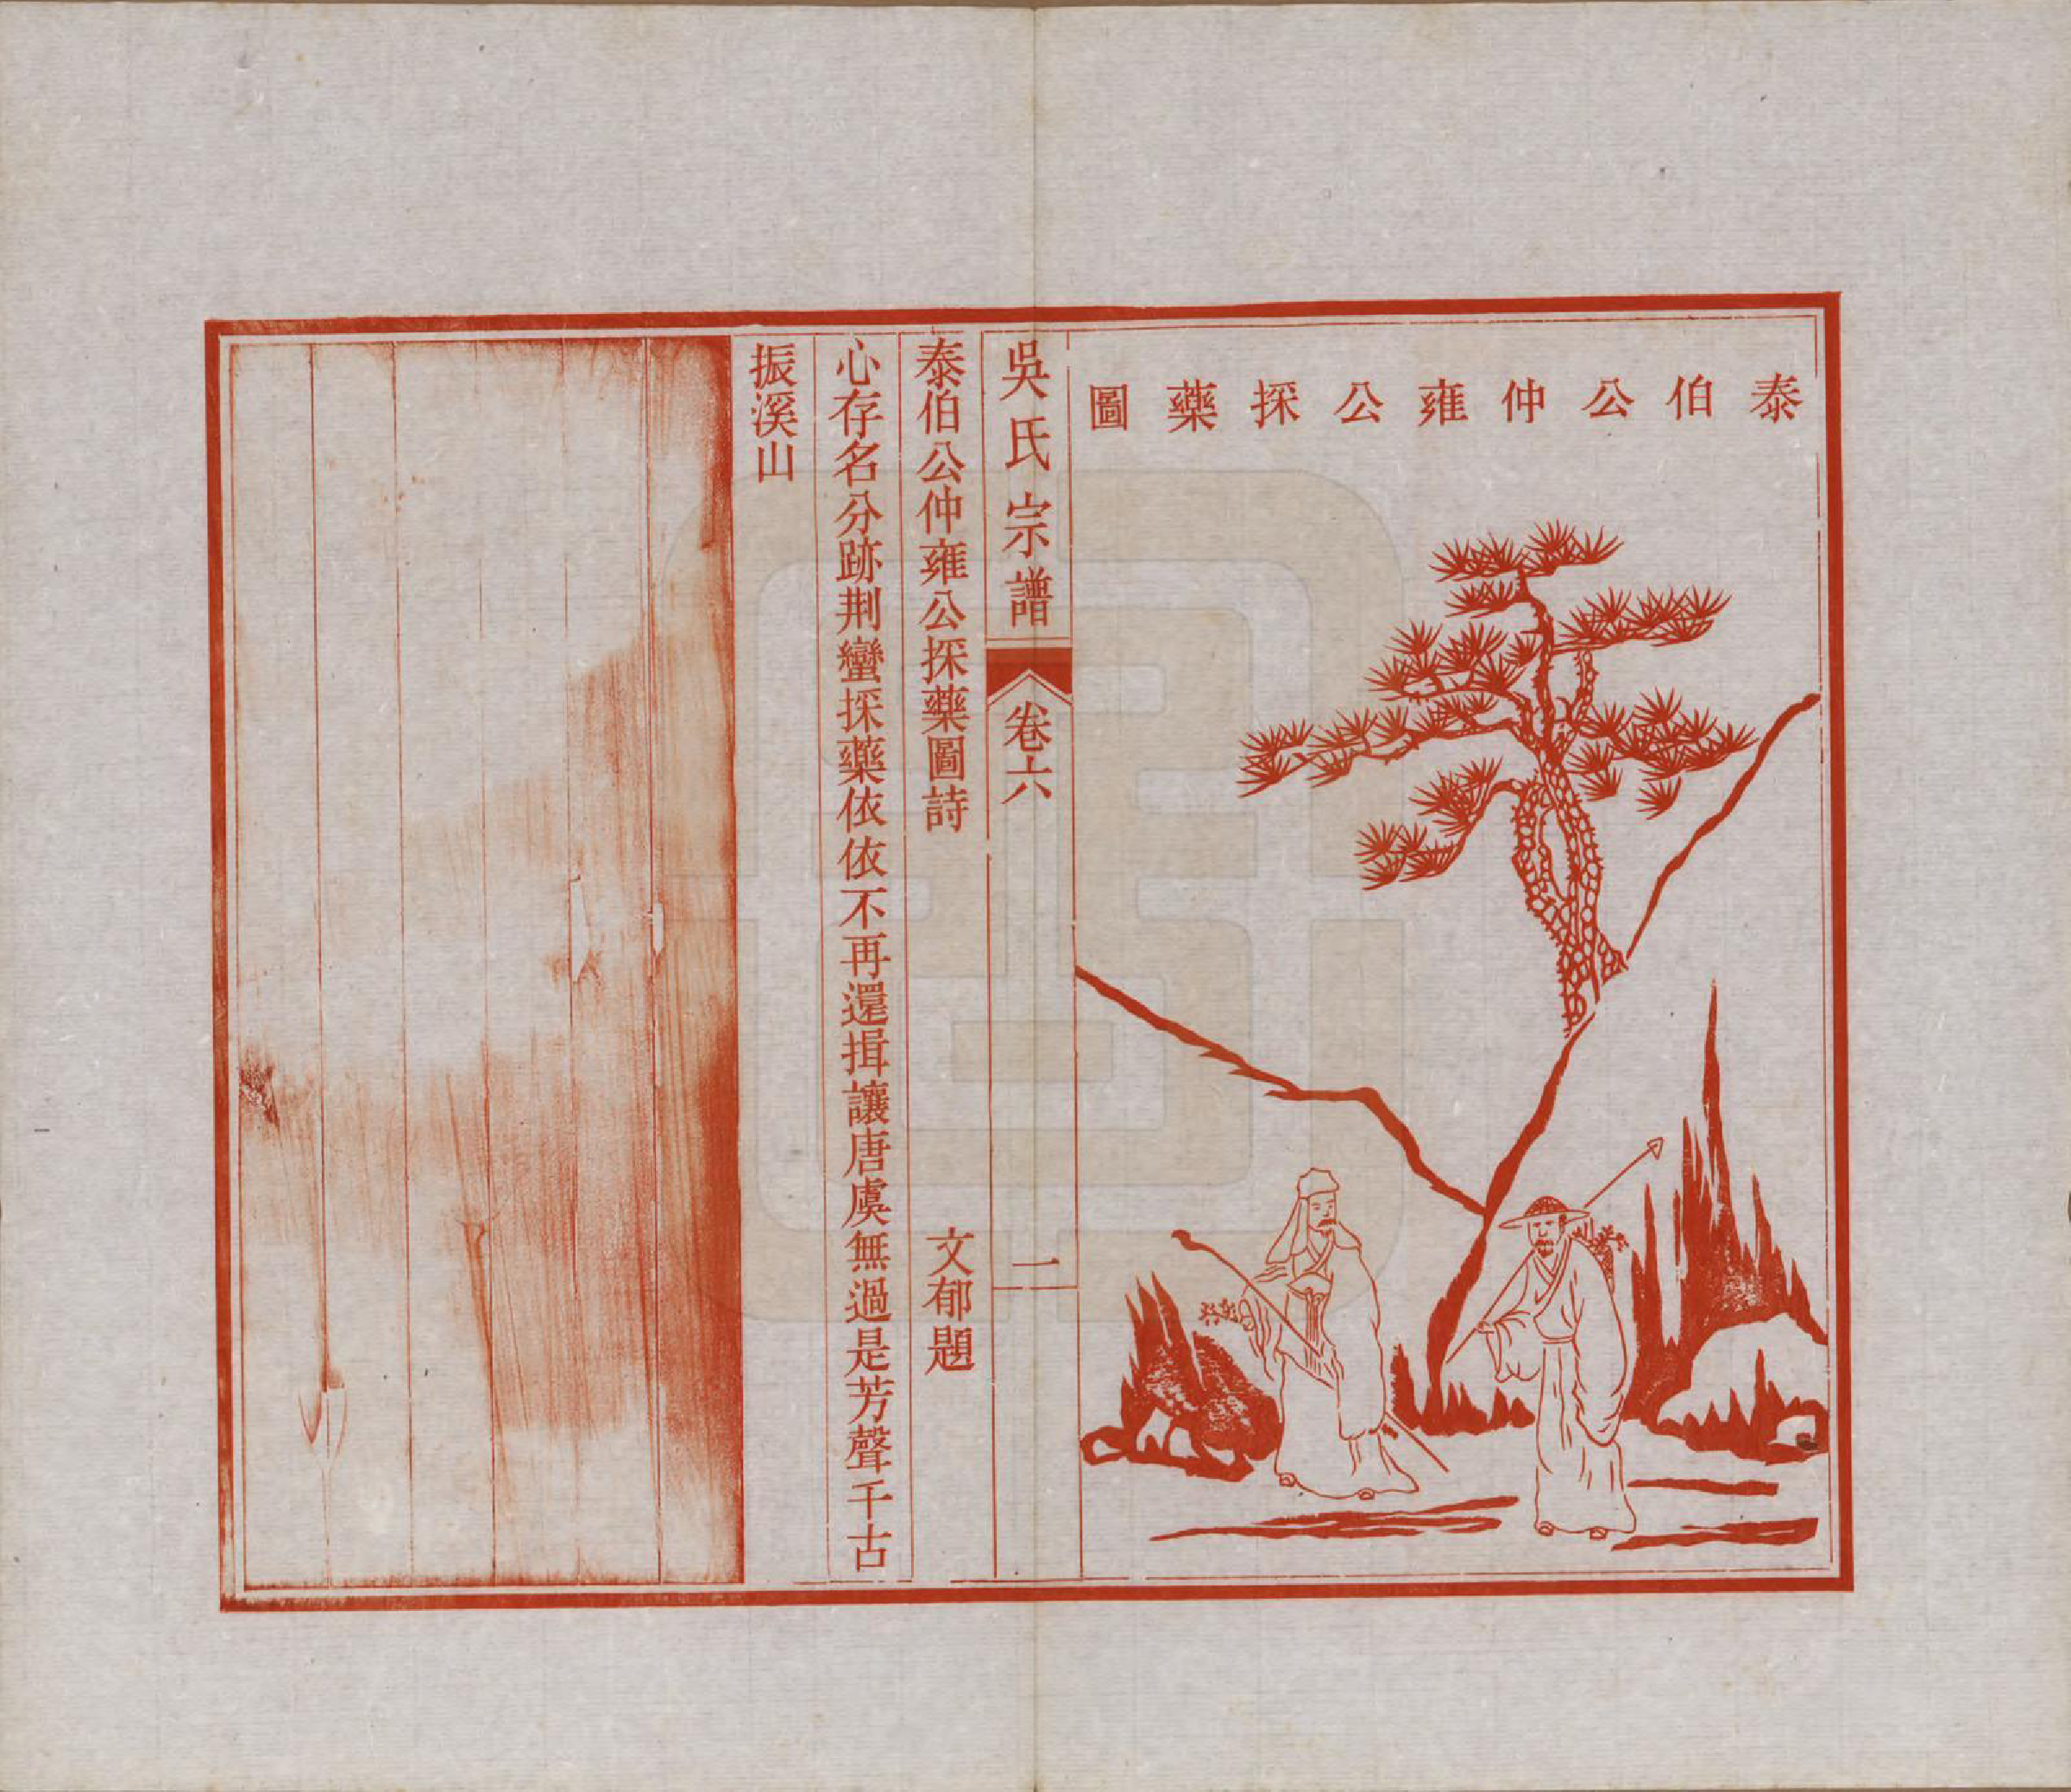 泰伯公仲雍公採藥圖
吳氏宗譜
卷六
一
泰伯公仲雍公採藥圖詩
文郁題
心存名分跡荆蠻採藥依依不再還揖讓唐虞無過是芳聲千古
振溪山